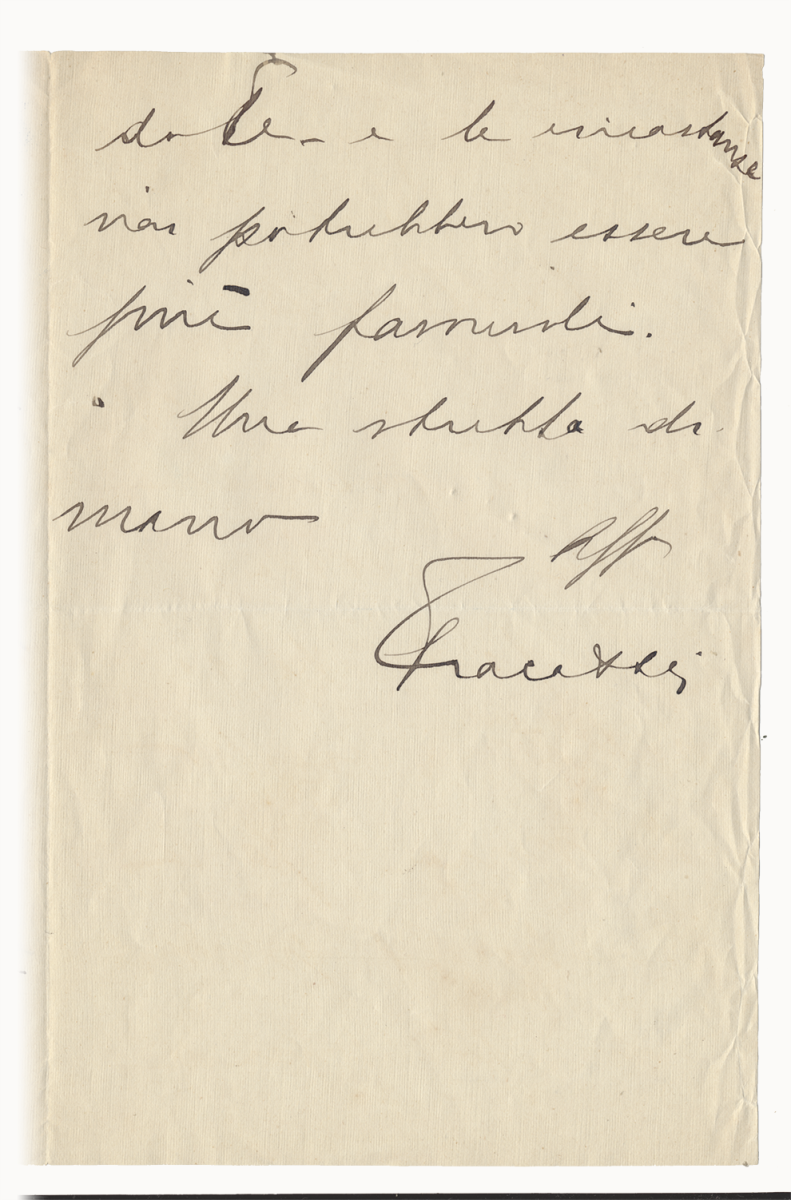 da Te - e le circostanze
non potrebbero essere
più favorevoli.
Una stretta di
mano
aff
Fracassi